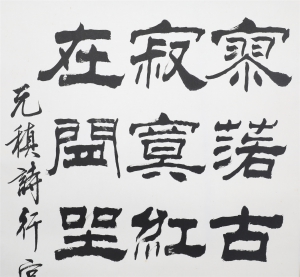 寥落古
寂寞紅
在閒坐
元稹詩行